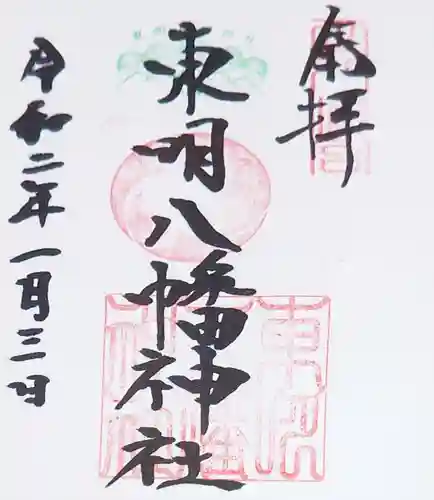 奉拝
東明八幡神社
令和二年一月三日